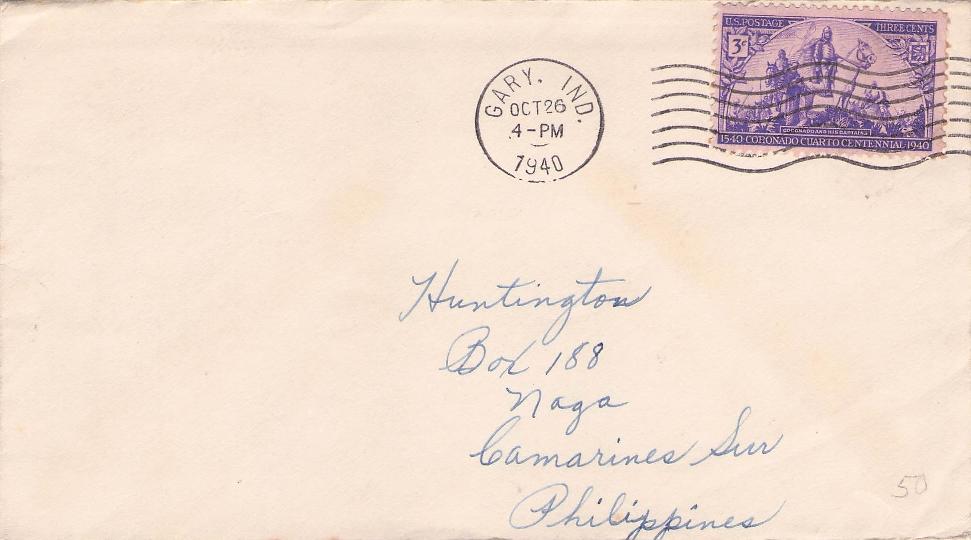 U.S. POSTAGE THREE CENTS
3¢
CORONADO AND HIS CAPTAINS
1540·CORONADO CUARTO CENTENNIAL·1940
GARY, IND.
OCT 26
4-PM
1940
Huntington
Box 188
Naga
Camarines Sur
Philippines
50